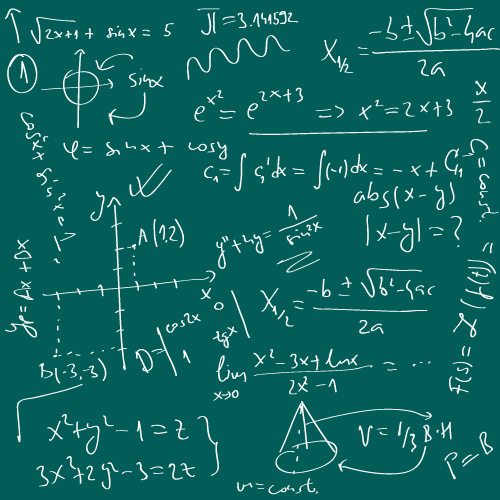 √2x+1 + sinx = 5
Π = 3.141592
X₁/₂ = -b ± √b²-4ac / 2a
1
sinx
e^x² = e^2x+3 => x² = 2x+3
x/2
cos²x + sin²x = 1
φ = sinx + cosy
C₁ = ∫ C₁'dx = ∫(-1)dx = -x + C₁
C = const.
abs(x-y)
|x-y| = ?
y
A(1,2)
y'' + 4y = 1/sin2x
yp = Ax + Bx
x
0
X₁/₂ = -b ± √b²-4ac / 2a
D = | cos2x 0
1 tgx |
B(-3,-3)
lim x→0 x²-3x+lnx / 2x²-1 = ...
F(s) = ℒ(f(t)) =
x²+y²-1=z
3x²+2y²-3=2z }
V = 1/3 B·H
P = B
m = const.